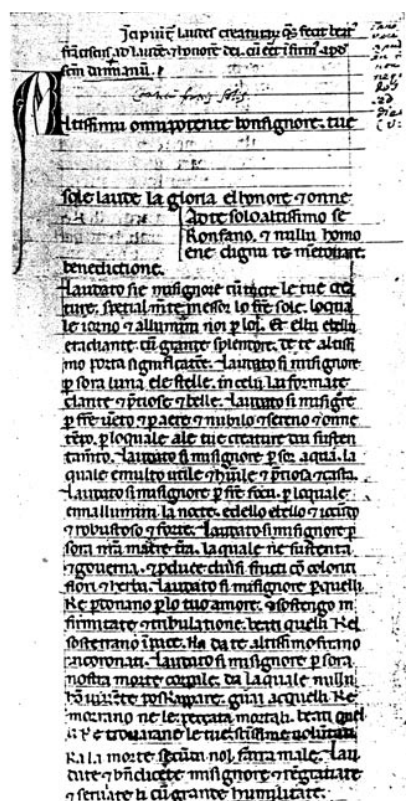 Incipiūt laudes creaturaꝝ q̄s fecit beatꝰ
franciscus ad laudē ⁊ honorē dei. cū eēt ifirmꝰ apd̄
scm̄ damianū.
Altissimu onnipotente bonsignore. tue
sole laude la gloria elhonore ⁊ onne
Adte solo altissimo se
konfano. ⁊ nullu homo
ene dignu te mētouare.
benedictione.
Laudato sie misignore cū tucte le tue crea
ture. spetialm̄te messor lo fr̄e sole. loqual
le iorno ⁊ allumini noi p loi. Et ellu ebellu
eradiante cū grande splendore. de te altissi
mo porta significatōe. Laudato si misignore
p sora luna ele stelle. in celu lai formate
clarite ⁊ p̄tiose ⁊ belle. Laudato si misigre
p fr̄e uēto ⁊ p aere ⁊ nubilo ⁊ sereno ⁊ onne
tēpo. p loquale ale tue creature dai susten
tam̄to. Laudato si misignore p sor aqua. la
quale emulto utile ⁊ hūile ⁊ p̄tiosa ⁊ casta.
Laudato si misignore p fr̄e focu. p loquale
ennallumini la nocte. edello ebello ⁊ iocūdo
⁊ robustoso ⁊ forte. Laudato si misignore p
sora nr̄a matre tr̄a. la quale ne sustenta
⁊ gouerna. ⁊ produce diuersi fructi cō coloriti
flori ⁊ herba. Laudato si misignore p quelli
ke p̄donano p lo tuo amore. ⁊ sostengo in
firmitate ⁊ tribulatione. beati quelli kel
sosterrano ī pace. ka da te altissimo sirano
incoronati. Laudato si misignore p sora
nostra morte corp̄ale. da la quale nullu
hō uiuēte poskappare. guai acquelli ke
morrano ne le peccata mortali. beati quel
li ke trouarane le tue sc̄tissime uoluntati
ka la morte secūda nol farra male. Lau
date ⁊ bn̄dicete misignore ⁊ rēgratiate
⁊ seruiate li cū grande humilitate.